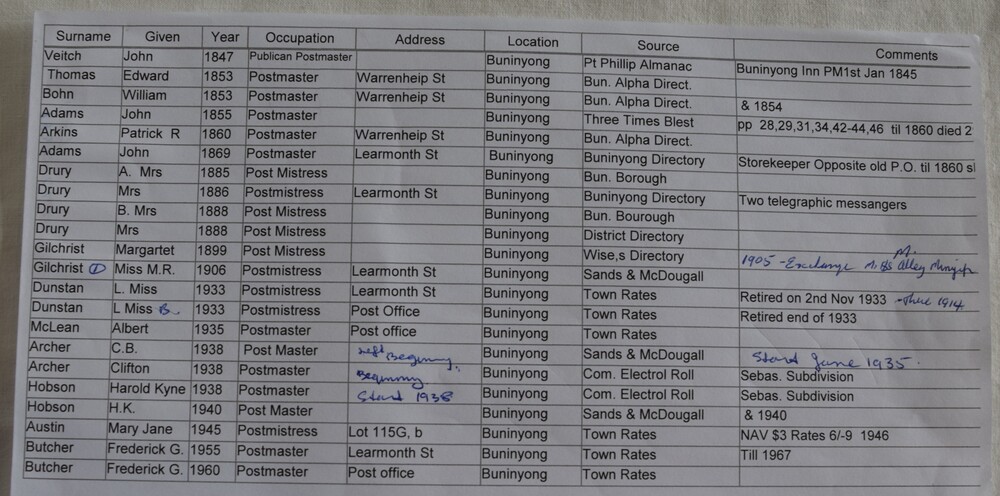 Surname Given Year Occupation Address Location Source Comments
Veitch John 1847 Publican Postmaster Buninyong Pt Phillip Almanac Buninyong Inn PM1st Jan 1845
Thomas Edward 1853 Postmaster Warrenheip St Buninyong Bun. Alpha Direct.
Bohn William 1853 Postmaster Warrenheip St Buninyong Bun. Alpha Direct. & 1854
Adams John 1855 Postmaster Buninyong Three Times Blest pp 28,29,31,34,42-44,46 til 1860 died 2
Arkins Patrick R 1860 Postmaster Warrenheip St Buninyong Bun. Alpha Direct.
Adams John 1869 Postmaster Learmonth St Buninyong Buninyong Directory Storekeeper Opposite old P.O. til 1860 sl
Drury A. Mrs 1885 Post Mistress Buninyong Bun. Borough
Drury Mrs 1886 Postmistress Learmonth St Buninyong Buninyong Directory Two telegraphic messangers
Drury B. Mrs 1888 Post Mistress Buninyong Bun. Bourough
Drury Mrs 1888 Post Mistress Buninyong District Directory
Gilchrist Margartet 1899 Post Mistress Buninyong Wise,s Directory 1905 - Exchange M. Miss Alley
Gilchrist 1 Miss M.R. 1906 Postmistress Learmonth St Buninyong Sands & McDougall
Dunstan L. Miss 1933 Postmistress Learmonth St Buninyong Town Rates Retired on 2nd Nov 1933 - there 1914
Dunstan L Miss B. 1933 Postmistress Post Office Buninyong Town Rates Retired end of 1933
McLean Albert 1935 Postmaster Post office Buninyong Town Rates
Archer C.B. 1938 Post Master left Beginning Buninyong Sands & McDougall Start June 1935.
Archer Clifton 1938 Postmaster Beginning Buninyong Com. Electrol Roll Sebas. Subdivision
Hobson Harold Kyne 1938 Postmaster Start 1938 Buninyong Com. Electrol Roll Sebas. Subdivision
Hobson H.K. 1940 Post Master Buninyong Sands & McDougall & 1940
Austin Mary Jane 1945 Postmistress Lot 115G, b Buninyong Town Rates NAV $3 Rates 6/-9 1946
Butcher Frederick G. 1955 Postmaster Learmonth St Buninyong Town Rates Till 1967
Butcher Frederick G. 1960 Postmaster Post office Buninyong Town Rates